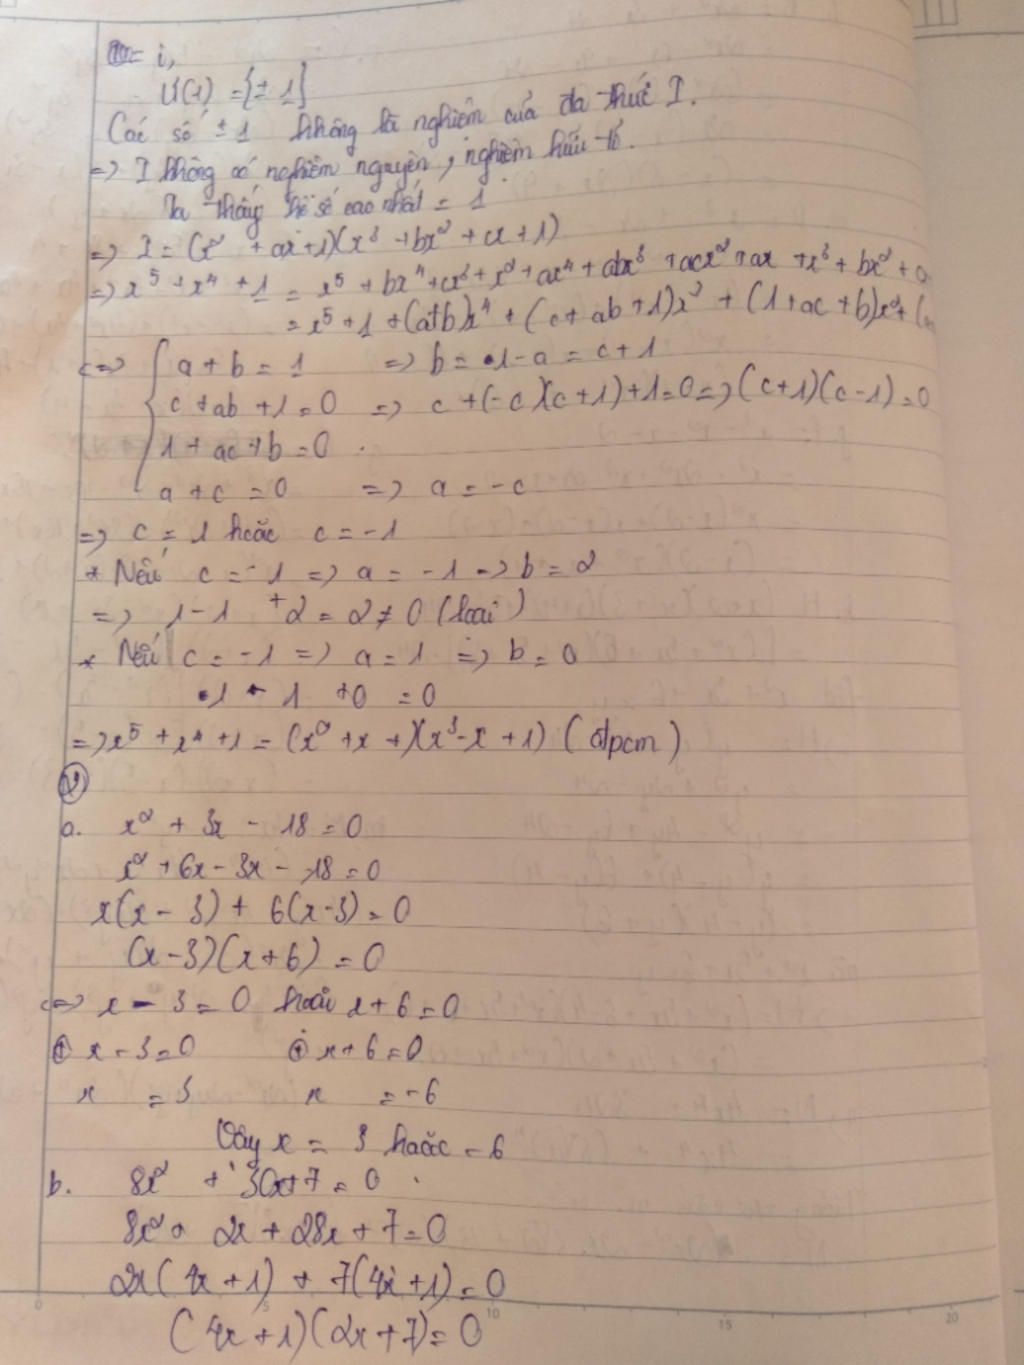 i,
Ư(1) = {± 1}
Các số ± 1 không là nghiệm của đa thức I.
=> I không có nghiệm nguyên, nghiệm hữu tỉ.
Ta thấy hệ số cao nhất = 1
=> I = (x² + ax + 1)(x³ + bx² + cx + 1)
=> x⁵ + x⁴ + 1 = x⁵ + bx⁴ + cx³ + x² + ax⁴ + abx³ + acx² + ax + x³ + bx² +
= x⁵ + 1 + (a+b)x⁴ + (c + ab + 1)x³ + (1 + ac + b)x² + (
<=> { a + b = 1 => b = 1 - a = c + 1
c + ab + 1 = 0 => c + (-c)(c + 1) + 1 = 0 => (c+1)(c-1) = 0
1 + ac + b = 0
a + c = 0 => a = -c
=> c = 1 hoặc c = -1
* Nếu c = 1 => a = -1 => b = 2
=> 1 - 1 + 2 = 2 ≠ 0 (loại)
* Nếu c = -1 => a = 1 => b = 0
1 - 1 + 0 = 0
=> x⁵ + x⁴ + 1 = (x² + x + )(x³ - x + 1) (đpcm)
V
a. x² + 3x - 18 = 0
x² + 6x - 3x - 18 = 0
x(x - 3) + 6(x - 3) = 0
(x - 3)(x + 6) = 0
<=> x - 3 = 0 hoặc x + 6 = 0
⊕ x - 3 = 0 ⊕ x + 6 = 0
x = 3 x = -6
Vậy x = 3 hoặc -6
b. 8x² + 30x + 7 = 0
8x² + 2x + 28x + 7 = 0
2x(4x + 1) + 7(4x + 1) = 0
(4x + 1)(2x + 7) = 0
0 5 10 15 20